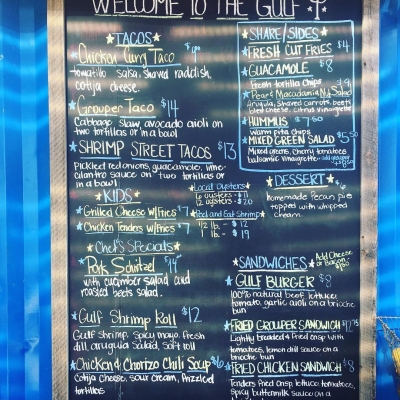 WELCOME TO THE GULF
TACOS
Chicken Curry Taco $
tomatillo salsa, shaved radish,
cotija cheese.
Grouper Taco $14
Cabbage slaw, avocado aioli on
two tortillas or in a bowl
SHRIMP STREET TACOS $13
Pickled red onions, guacamole, lime-
cilantro sauce on two tortillas or
in a bowl
KIDS
Grilled Cheese w/Fries $7
Chicken Tenders w/Fries $7
Chef's Specials
Pork Schnitzel $14
with cucumber salad and
roasted beets salad.
Gulf Shrimp Roll $12
Gulf shrimp, spicy mayo, fresh
dill arugula salad, soft roll
Chicken & Chorizo Chili Soup $6
Cotija cheese, sour cream, frizzled
tortillas
Local Oysters
6 oysters $11
12 oysters $20
Peel and Eat Shrimp
1/2 lb. - $12
1 lb. - $19
SHARE/SIDES
FRESH CUT FRIES $4
GUACAMOLE $8
Fresh tortilla chips
Pear & Macadamia Ny Salad $9
Arugula, shaved carrots, beets,
cheese, citrus vinaigrette
HUMMUS $7.50
warm pita chips
MIXED GREEN SALAD $5.50
Mixed greens, cherry tomatoes
balsamic vinaigrette - add grouper
DESSERT $6
homemade Pecan pie
topped with whipped
cream
SANDWICHES Add Cheese
or Bacon
GULF BURGER $8
100% natural beef, lettuce,
tomato, garlic aioli on a brioche
bun
FRIED GROUPER SANDWICH $12.75
Lightly breaded & fried crisp with
tomatoes, lemon dill sauce on a
brioche bun
FRIED CHICKEN SANDWICH $8
Tenders fried crisp, lettuce, tomatoes,
Spicy buttermilk sauce on a